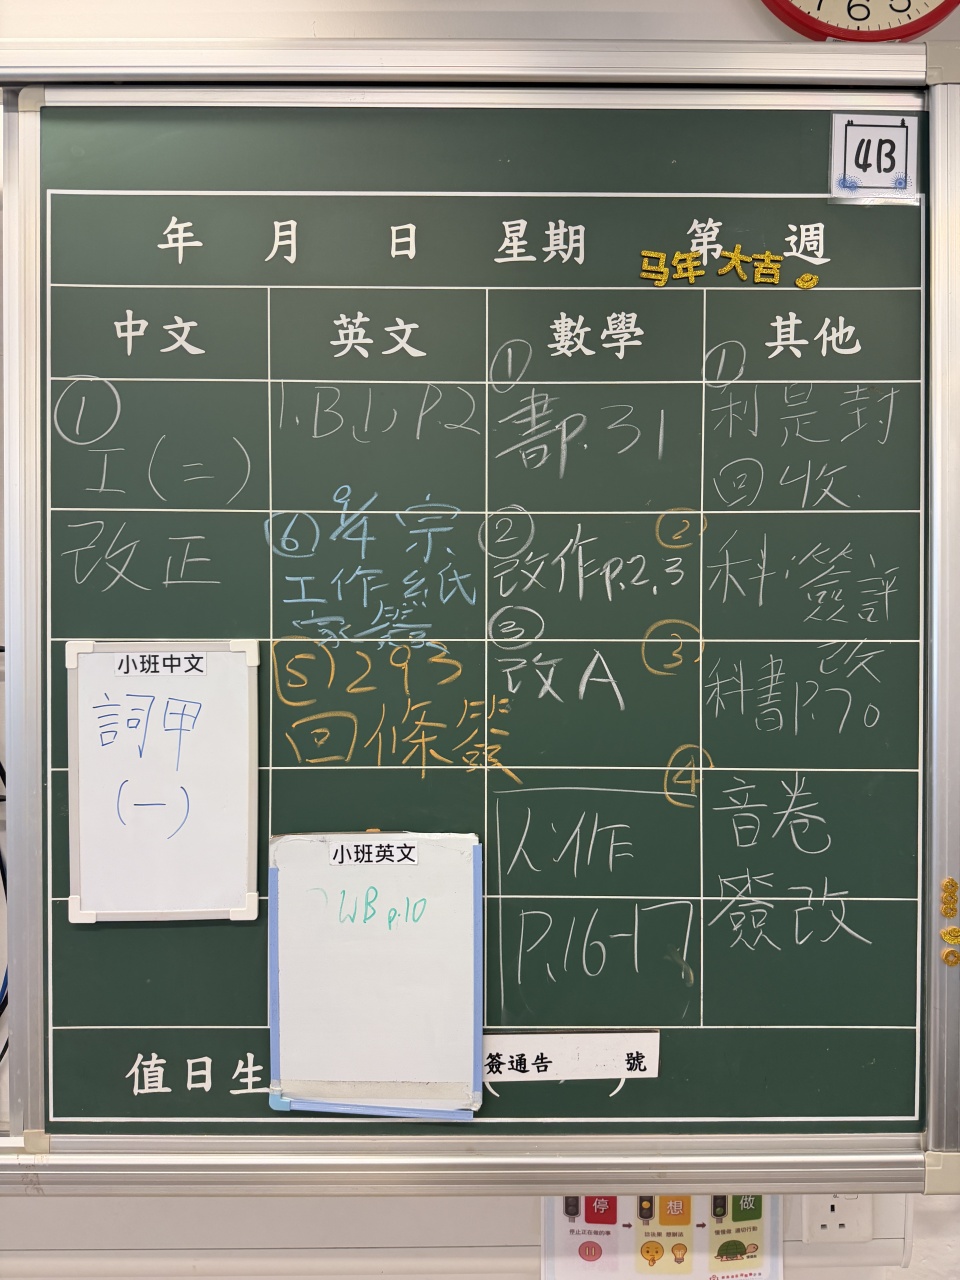 7 6 5
4B
年 月 日 星期 第 週
马年大吉
中文 英文 數學 其他
①
工(二)
改正
小班中文
詞甲
(一)
1. B(1) P.2
⑥ 9/4 宗
工作紙
家簽
⑤ 293
回條簽
小班英文
WB p.10
①
書P.31
②
改作P.2,3
③
改A
人作
P.16-17
①
利是封
回收.
②
科.簽評
③
改
科書P.70
④
音卷
簽改
值日生
簽通告 號
( )
停 想 做